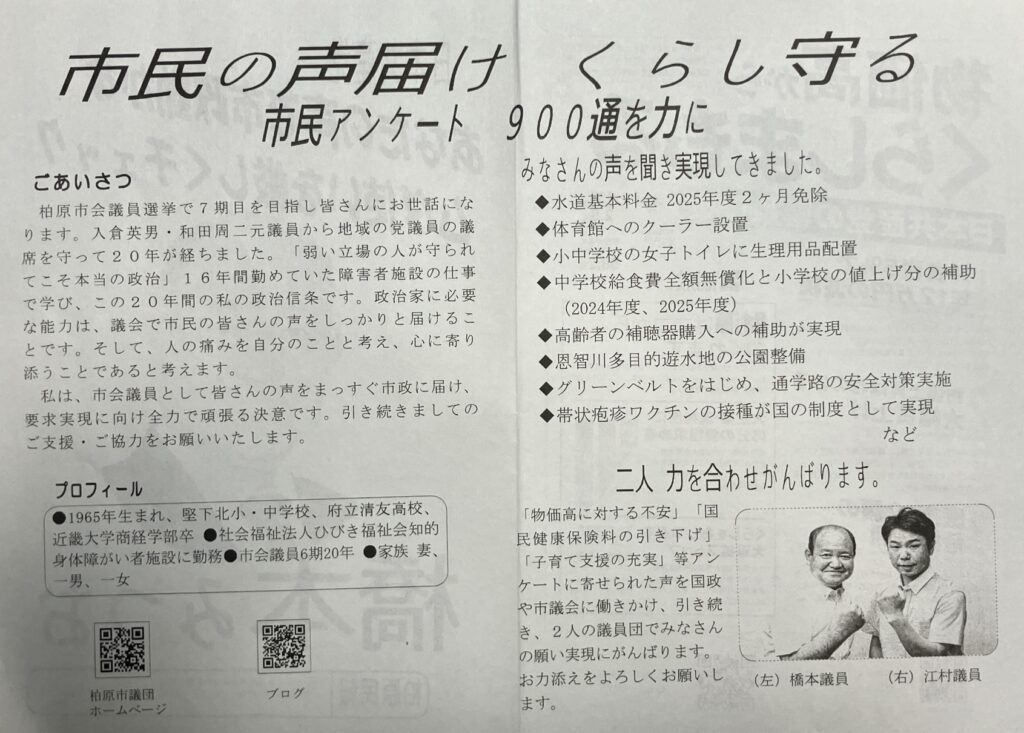 市民の声届け　くらし守る
市民アンケート　９００通を力に
ごあいさつ
　柏原市会議員選挙で７期目を目指し皆さんにお世話にな
ります。入倉英男・和田周二元議員から地域の党議員の議
席を守って２０年が経ちました。「弱い立場の人が守られ
てこそ本当の政治」１６年間勤めていた障害者施設の仕事
で学び、この２０年間の私の政治信条です。政治家に必要
な能力は、議会で市民の皆さんの声をしっかりと届けるこ
とです。そして、人の痛みを自分のことと考え、心に寄り
添うことであると考えます。
　私は、市会議員として皆さんの声をまっすぐ市政に届け、
要求実現に向け全力で頑張る決意です。引き続きましての
ご支援・ご協力をお願いいたします。
プロフィール
●1965年生まれ、堅下北小・中学校、府立清友高校、
近畿大学商経学部卒 ●社会福祉法人ひびき福祉会知的
身体障がい者施設に勤務●市会議員6期20年 ●家族 妻、
一男、一女
柏原市議団
ホームページ
ブログ
みなさんの声を聞き実現してきました。
◆水道基本料金 2025年度２ヶ月免除
◆体育館へのクーラー設置
◆小中学校の女子トイレに生理用品配置
◆中学校給食費全額無償化と小学校の値上げ分の補助
（2024年度、2025年度）
◆高齢者の補聴器購入への補助が実現
◆恩智川多目的遊水地の公園整備
◆グリーンベルトをはじめ、通学路の安全対策実施
◆帯状疱疹ワクチンの接種が国の制度として実現
など
二人 力を合わせがんばります。
「物価高に対する不安」「国
民健康保険料の引き下げ」
「子育て支援の充実」等アン
ケートに寄せられた声を国政
や市議会に働きかけ、引き続
き、２人の議員団でみなさん
の願い実現にがんばります。
お力添えをよろしくお願いし
ます。
（左）橋本議員　（右）江村議員